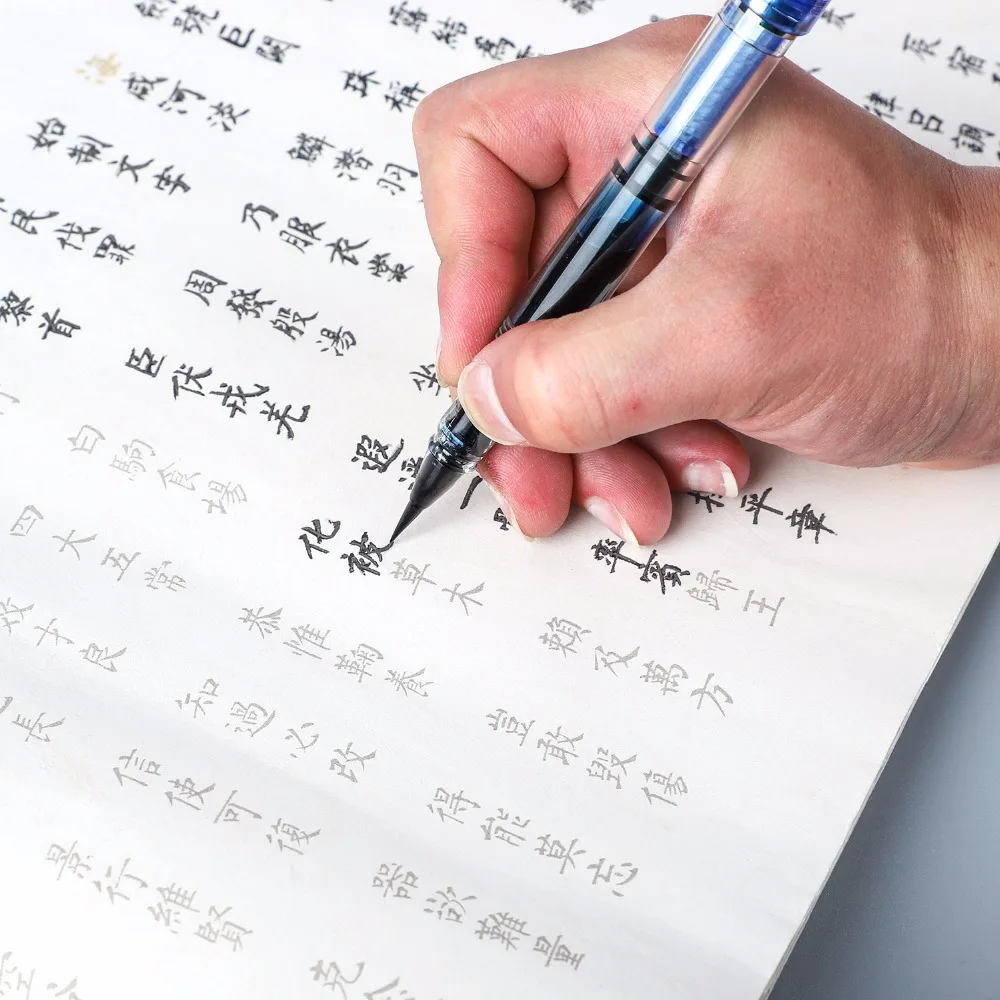 辰宿
露結為
律呂調
號巨闕 珠稱
咸河淡 鱗潛羽
始制文字 乃服衣裳
民伐罪 周發殷湯 坐 平章
黎首 臣伏戎羌 遐 一 率賓歸王
白駒食場 化被草木 賴及萬方
四大五常 恭惟鞠養 豈敢毀傷
效才良 知過必改 得能莫忘
長 信使可復 器欲難量
景行維賢 克